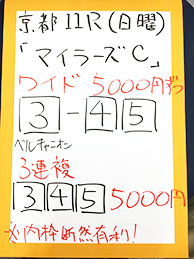 京都11R(日曜)
「マイラーズC」
ワイド 5000円ずつ
3-45
ベルキャニオン
3連複
345 5000円
※内枠断然有利!